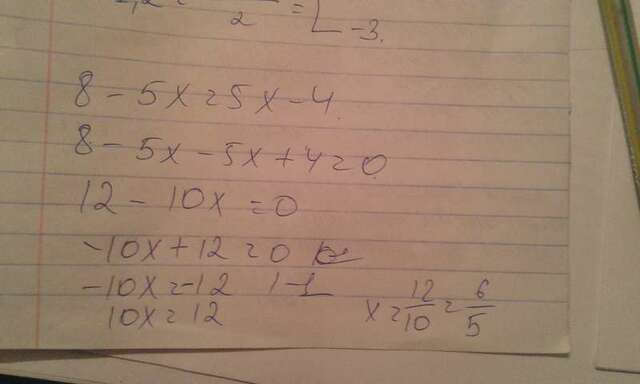 2 = L-3
8 - 5x = 5x - 4
8 - 5x - 5x + 4 = 0
12 - 10x = 0
-10x + 12 = 0
-10x = -12 |-1
10x = 12
x = 12/10 = 6/5